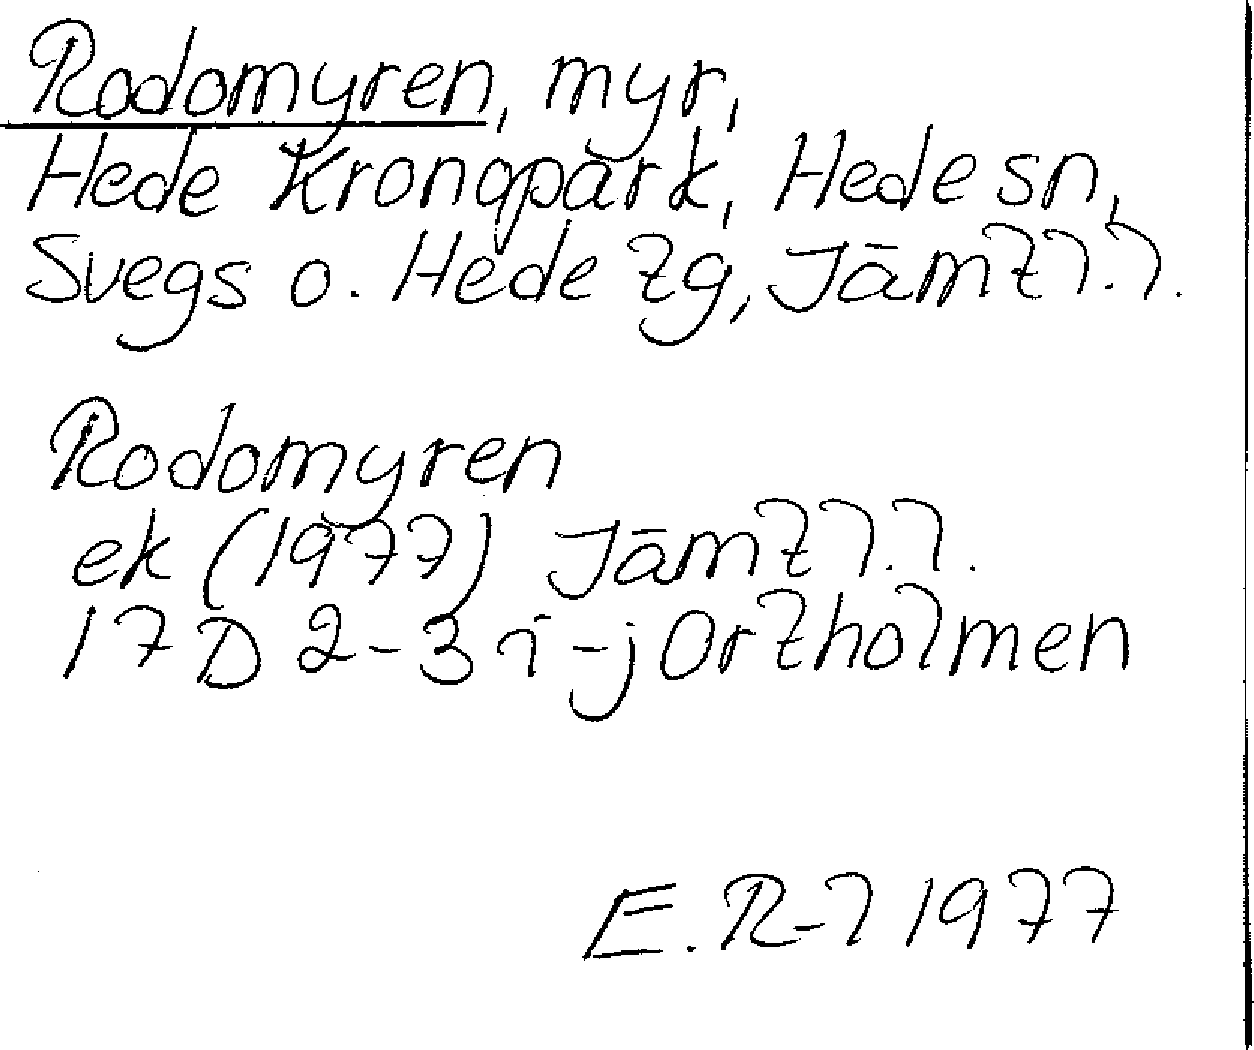 Rodomyren, myr,
Hede Kronopark, Hede sn,
Svegs o. Hede tg, Jämtl. l.
Rodomyren
ek (1977) Jämtl. l.
17 D 2-3 i-j Ortholmen
E. R-l 1977